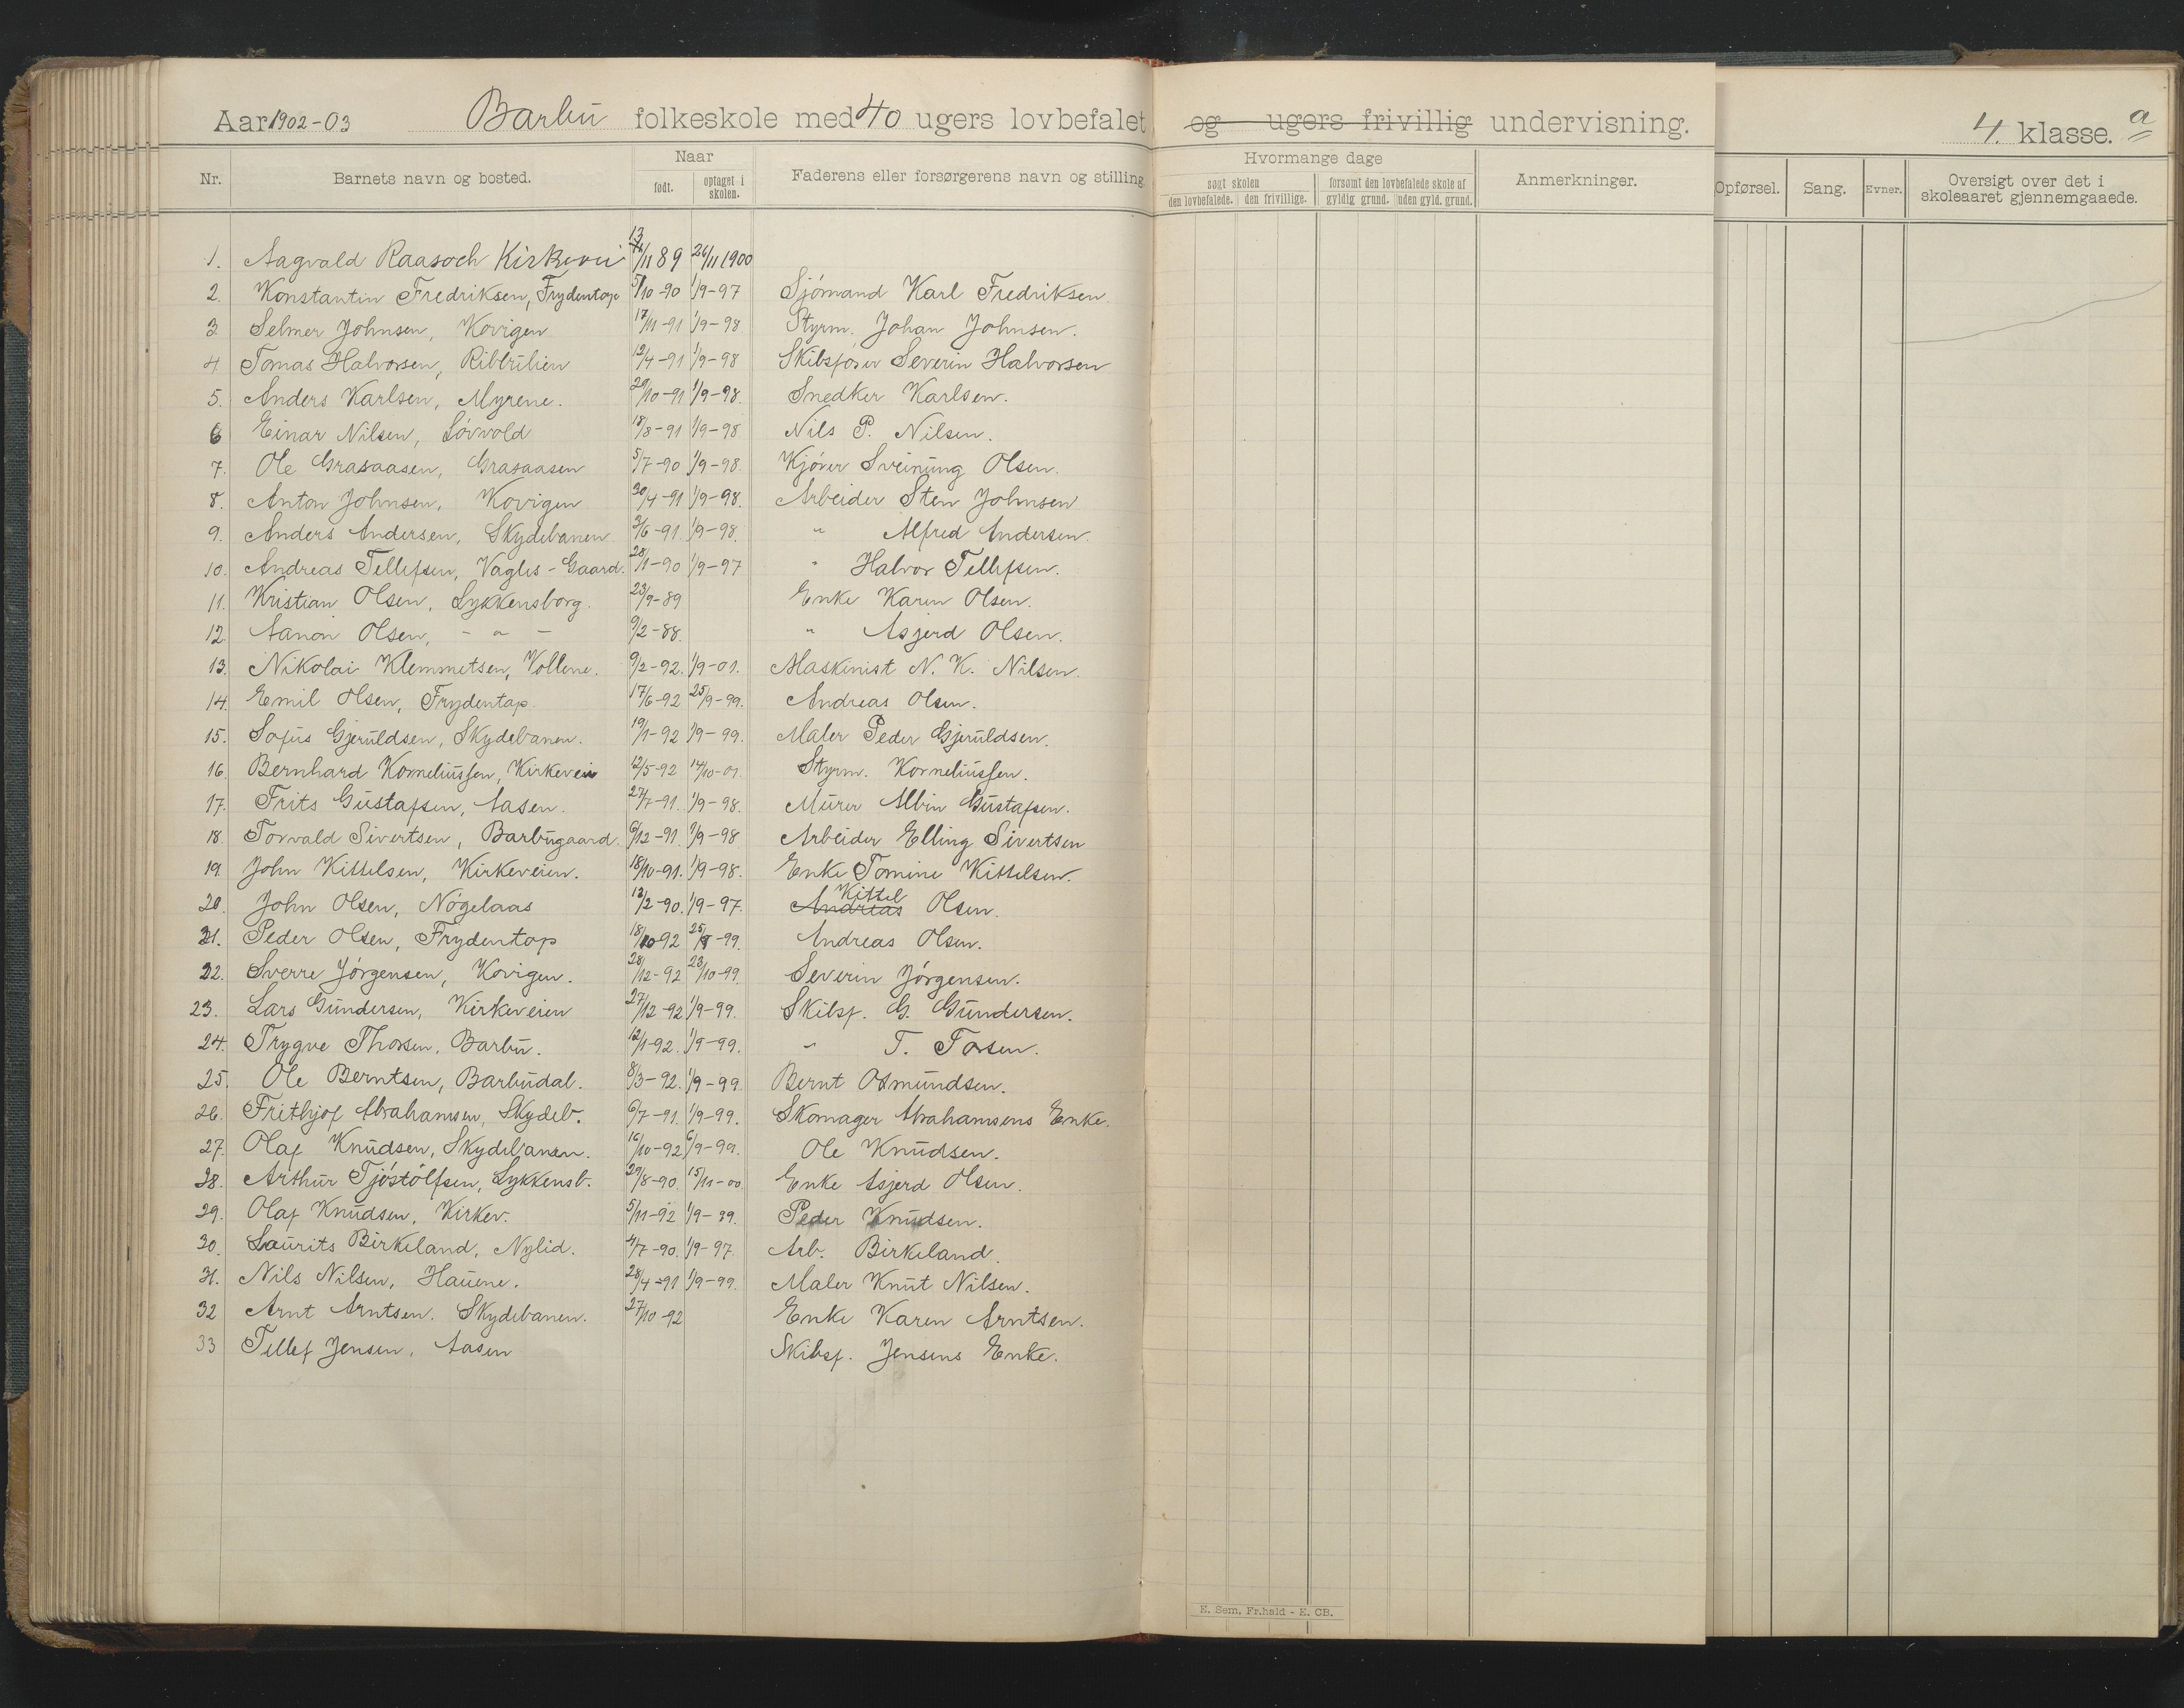 Aar 1902-03 Barbu folkeskole med 40 ugers lovbefalet og ugers frivillig undervisning. 4. klasse. a
Nr. Barnets navn og bosted. Naar født. optaget i skolen. Faderens eller forsørgerens navn og stilling. Hvormange dage søgt skolen den lovbefalede. den frivillige. forsømt den lovbefalede skole af gyldig grund. uden gyld. grund. Anmerkninger. Opførsel. Sang. Evner. Oversigt over det i skoleaaret gjennemgaaede.
1. Aagvald Raasoch Kirkevei 13/11 89 26/11 1900
2. Konstantin Fredriksen, Frydentop 5/10-90 1/9-97 Sjömand Karl Fredriksen.
3. Selmer Johnsen, Kovigen 17/11-91 1/9-98 Styrm. Johan Johnsen.
4 Tomas Halvorsen, Ribbilien 12/4-91 1/9-98 Skibsförer Severin Halvorsen
5. Anders Karlsen, Myrene. 20/10-91 1/9-98. Snedker Karlsen.
6 Einar Nilsen, Lövvold 18/8-91 1/9-98 Nils P. Nilsen.
7. Ole Grasaasen, Grasaasen 5/7-90 1/9-98. Kjörer Sveinung Olsen.
8. Anton Johnsen, Kovigen 30/4-91 1/9-98. Arbeider Sten Johnsen
9. Anders Andersen, Skydebanen 3/6-91. 1/9-98. " Alfred Andersen.
10. Andreas Tellefsen, Vagles-Gaard. 28/11-90 1/9-97 " Halvor Tellefsen.
11. Kristian Olsen, Lykkensborg. 23/9-89 Enke Karen Olsen.
12. Aanon Olsen, - " - 9/2-88. " Asjerd Olsen.
13. Nikolai Klemmetsen, Vollene. 9/2-92. 1/9-01. Maskinist N. K. Nilsen.
14. Emil Olsen, Frydentop. 17/6-92 25/9-99. Andreas Olsen.
15. Sofus Gjeruldsen, Skydebanen. 19/1-92 1/9-99. Maler Peder Gjeruldsen.
16. Bernhard Korneliussen, Kirkevein 12/5-92 14/10-01. Styrm. Korneliussen.
17. Frits Gustafsen, Aasen. 27/7-91. 1/9-98. Murer Albin Gustafsen.
18. Torvald Sivertsen, Barbugaard. 6/12-91. 1/9-98 Arbeider Elling Sivertsen
19. John Kittelsen, Kirkeveien. 18/10-91. 1/9-98. Enke Tomine Kittelsen.
20. John Olsen, Nögelaas 12/2-90. 1/9-97. Andreas Kittel Olsen.
21. Peder Olsen, Frydentop 18/10-92 25/9-99. Andreas Olsen.
22. Sverre Jörgensen, Kovigen. 28/12-92 23/10-99. Severin Jörgensen.
23. Lars Gundersen, Kirkeveien 27/12-92 1/9-99. Skibsf. G. Gundersen.
24. Trygve Thorsen, Barbu. 12/1-92. 1/9-99. " T. Torsen.
25. Ole Berntsen, Barbudal. 8/3-92. 1/9-99. Bernt Osmundsen.
26. Frithjof Abrahamsen, Skydeb. 6/7-91. 1/9-99. Skomager Abrahamsens Enke.
27. Olaf Knudsen, Skydebanen. 16/10-92. 6/9-99. Ole Knudsen.
28. Arthur Tjöstölfsen, Lykkensb. 29/8-90. 15/11-00. Enke Asjerd Olsen.
29. Olaf Knudsen, Kirkev. 5/11-92 1/9-99. Peder Knudsen.
30. Laurits Birkeland, Nylid. 4/7-90. 1/9-97. Arb. Birkeland.
31. Nils Nilsen, Hauene. 28/4-91 1/9-99. Maler Knut Nilsen.
32 Arnt Arntsen. Skydebanen. 27/10-92 Enke Karen Arntsen.
33 Tellef Jensen, Aasen Skibsf. Jensens Enke.
E. Sem, Fr.hald - E. CB.